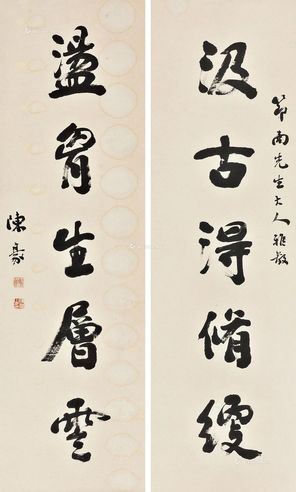 汲古得脩綆
節南先生大人雅教
盪胷生層雲
陳豪